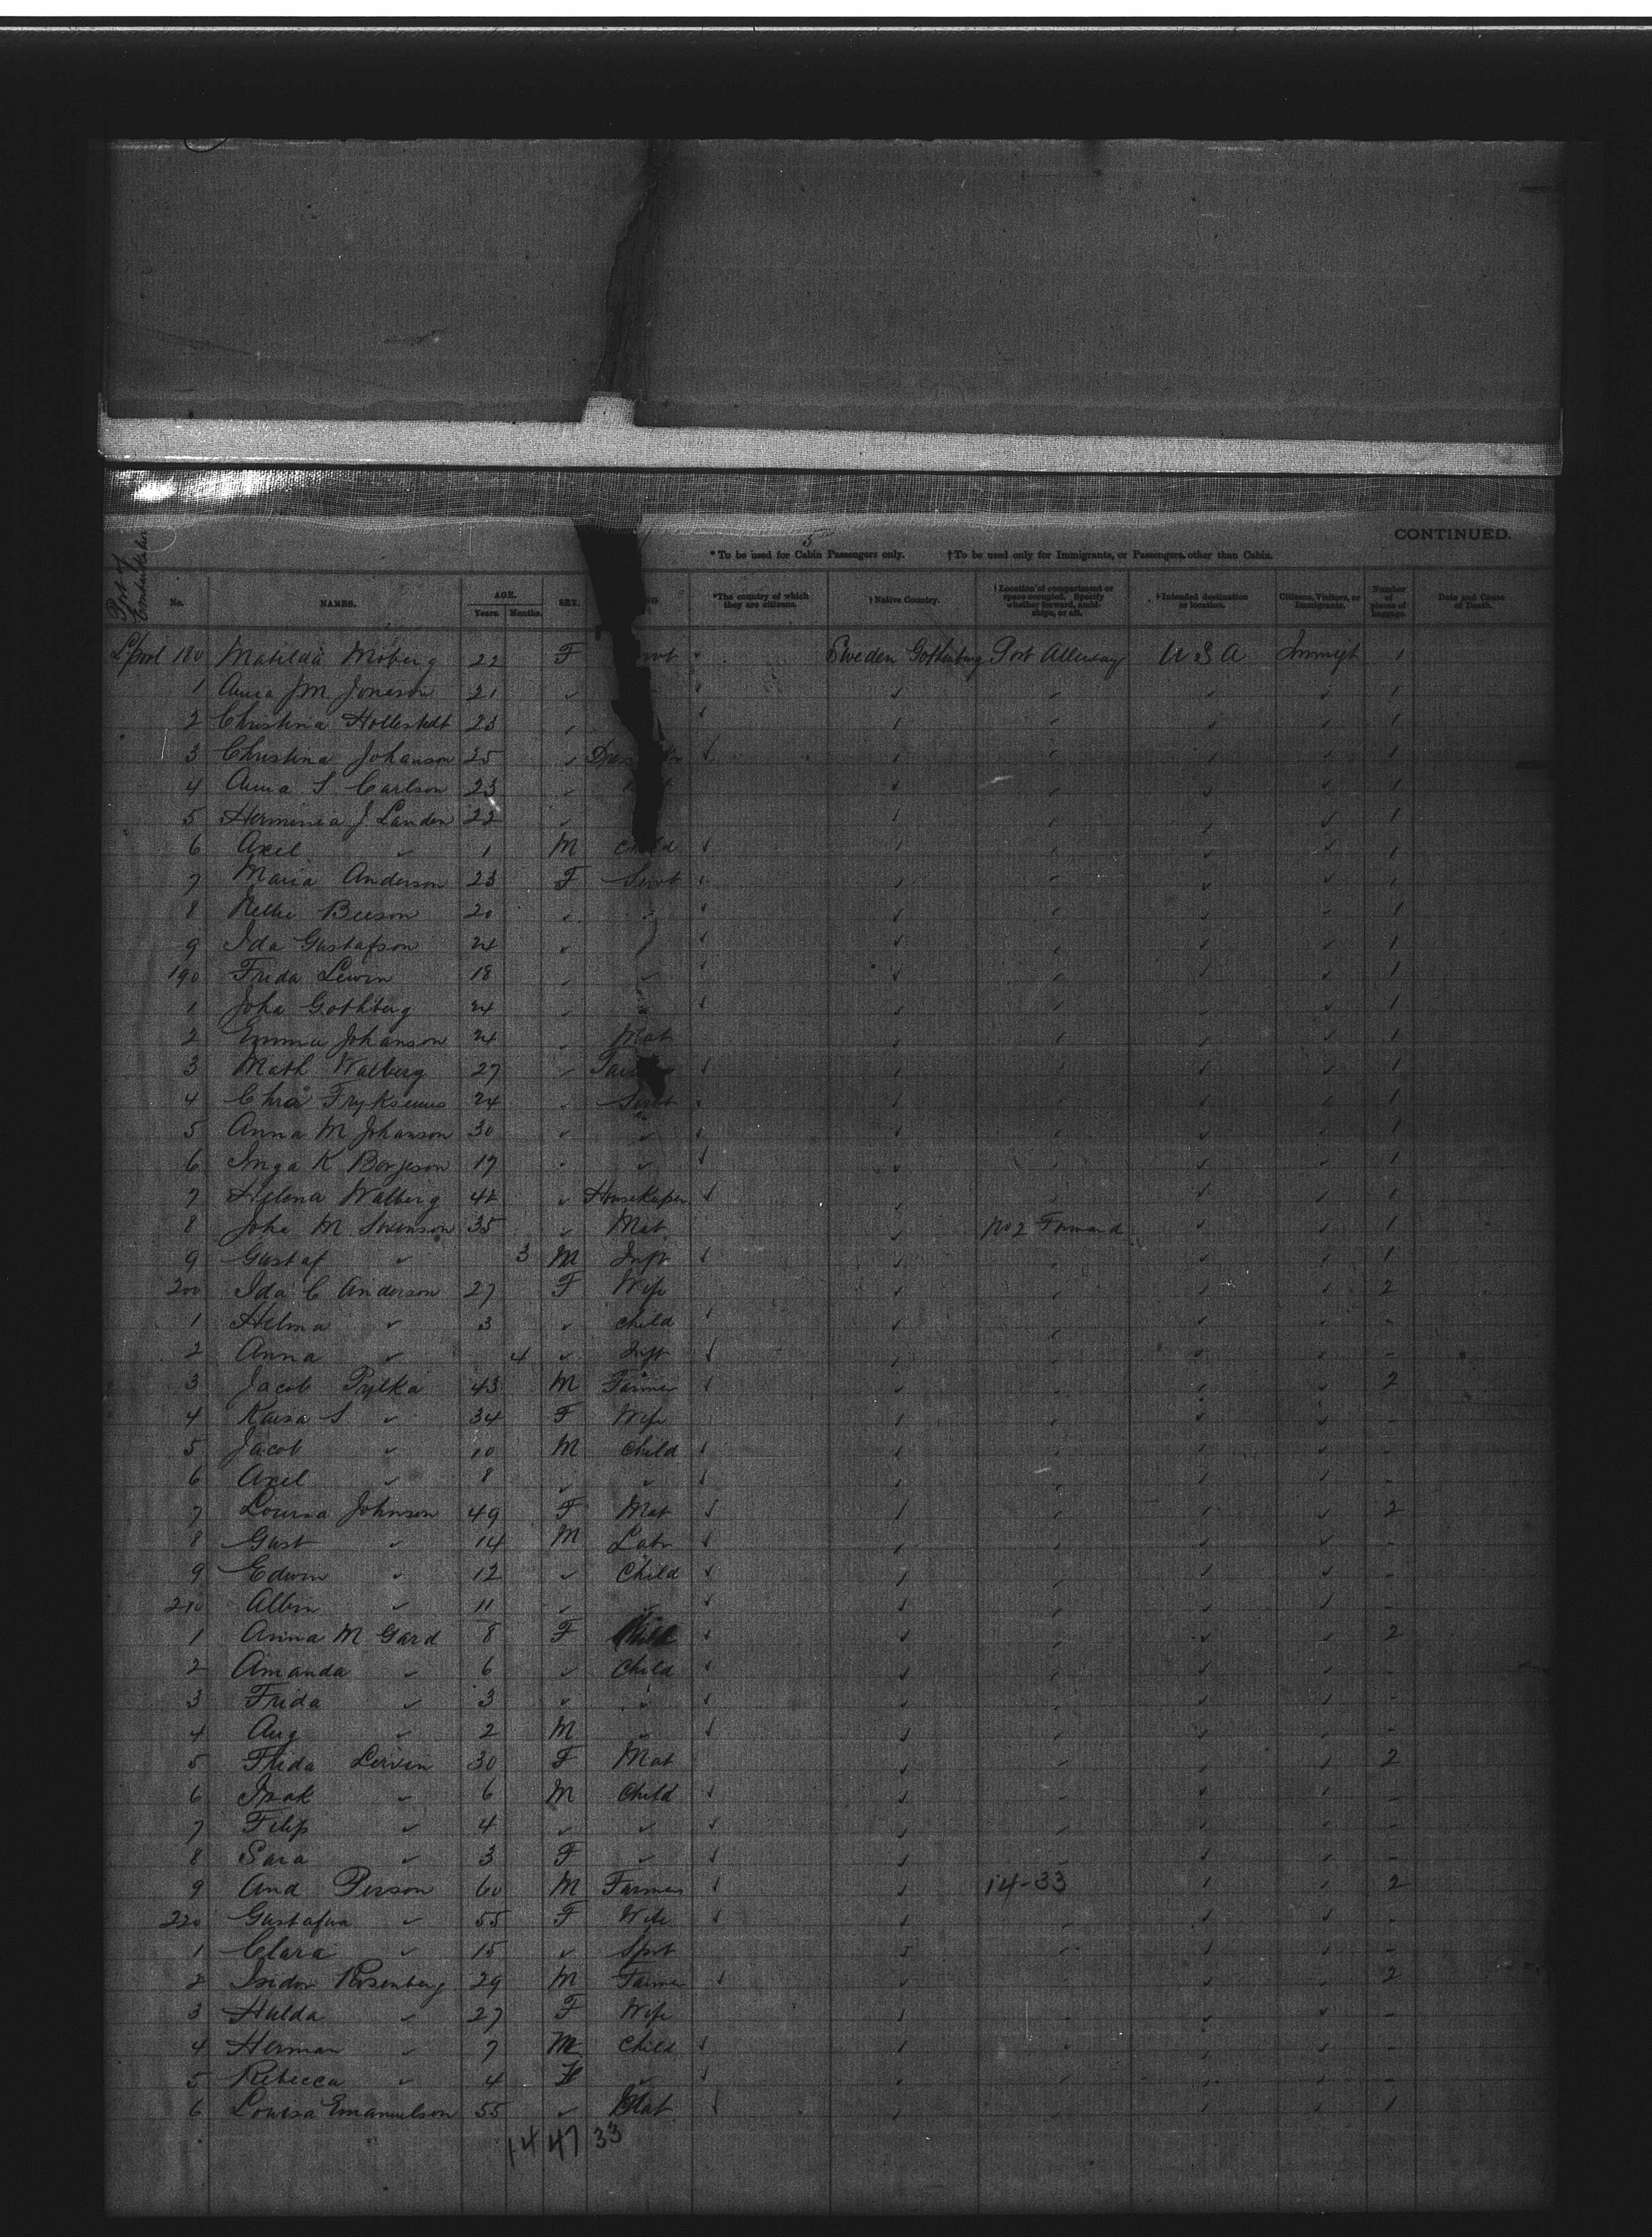 5
CONTINUED.
*To be used for Cabin Passengers only. †To be used only for Immigrants, or Passengers, other than Cabin.
Port of Embarkation
No. NAMES. AGE. Years. Months. SEX. *The country of which they are citizens. †Native Country. †Location of compartment or space occupied. Specify whether forward, amidships, or aft. †Intended destination or location. Citizens, Visitors, or Immigrants. Number of pieces of baggage. Date and Cause of Death.
L'pool 180 Matilda Moberg 22 F Sweden Gothenburg Port Alleway U S A Immigt 1
1 Anna J M Joneson 21 ✓ 1
2 Christina Hollestedt 23 1
3 Christina Johanson 25 ✓ 1
4 Anna S Carlson 23 1
5 Herminia J Landen 22 ✓ 1
6 Axel ✓ 1 M Child 1
7 Maria Anderson 23 F Servt 1
8 Nellie Beeson 20 1
9 Ida Gustafson 24 ✓ 1
190 Frida Lewin 18 ✓ 1
1 Joha Gothberg 24 1
2 Emma Johanson 24 Mat 1
3 Math Walberg 27 ✓ 1
4 Chra Fryksenus 24 Servt 1
5 Anna M Johanson 30 ✓ ✓ 1
6 Inga K Borjeson 19 ✓ 1
7 Helena Walberg 42 ✓ Housekeeper 1
8 Joha M Swenson 35 ✓ Mat No 2 Forward 1
9 Gustaf ✓ 3 M Inft 1
200 Ida C Anderson 27 F Wife 2
1 Helma ✓ 3 ✓ child -
2 Anna ✓ 4 ✓ Inft -
3 Jacob Pylka 43 M Farmer 2
4 Kaisa S ✓ 34 F Wife -
5 Jacob ✓ 10 M Child -
6 Axel ✓ 8 ✓ ✓ -
7 Lovisa Johnson 49 F Mat 2
8 Gust ✓ 14 M Labr -
9 Edwin ✓ 12 ✓ Child -
210 Albin ✓ 11 ✓ ✓ -
1 Anna M Gard 8 F Child 2
2 Amanda ✓ 6 ✓ Child -
3 Frida ✓ 3 ✓ ✓ -
4 Aug ✓ 2 M ✓ -
5 Frida Lewin 30 F Mat 2
6 Isak ✓ 6 M Child -
7 Filip ✓ 4 ✓ ✓ -
8 Sara ✓ 3 F ✓ -
9 And Person 60 M Farmer 14-33 2
220 Gustafva ✓ 55 F Wife -
1 Clara ✓ 15 ✓ Spst -
2 Isidor Rosenberg 29 M Farmer 2
3 Hulda ✓ 27 F Wife -
4 Herman ✓ 7 M Child -
5 Rebecca ✓ 4 F ✓ -
6 Lovisa Emanuelson 55 ✓ Mat 1
14 47 33